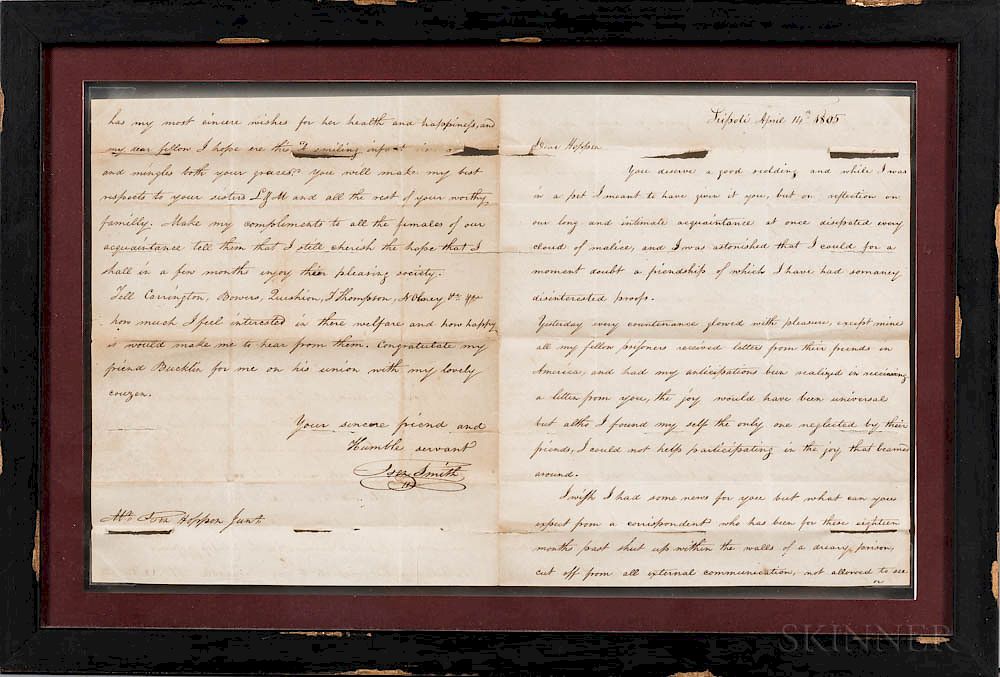 has my most sincere wishes for her health and happiness, and
my dear fellow I hope ere this a smiling infant
and mingles both your graces. You will make my best
respects to your sisters L & M and all the rest of your worthy
familly. Make my compliments to all the females of our
acquaintance tell them that I still cherish the hope that I
shall in a few months enjoy their pleasing society.
Tell Carrington, Bowers, F Thompson, N Clarey, &c &c
how much I feel interested in there welfare and how happy
is would make me to hear from them. Congratulate my
friend Bucklin for me on his union with my lovely
couzen.
Your sincere friend and
Humble servant
Smith
Mr Hoppen Junr
Tripoli April 14th 1805
Dear Hoppen
You deserve a good scolding, and while I was
in a pet I meant to have given it you, but on reflection on
our long and intimate acquaintance at once disipated every
cloud of malice, and I was astonished that I could for a
moment doubt a friendship of which I have had somany
disinterested proofs.
Yesterday every countenance glowed with pleasure, except mine
all my fellow prisoners received letters from their friends in
America, and had my anticipations been realized in receiving
a letter from you, the joy would have been universal
but altho I found my self the only one neglected by their
friends, I could not help participating in the joy that beamed
around.
I wish I had some news for you but what can you
expect from a correspondent who has been for these eighteen
months past shut up within the walls of a dreary prison,
cut off from all external communication, not allowed to see
or
SKINNER